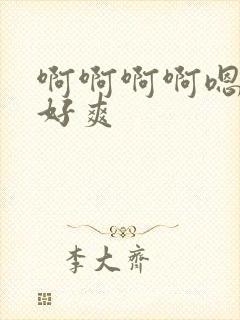 啊啊啊啊嗯
好爽
李大齐